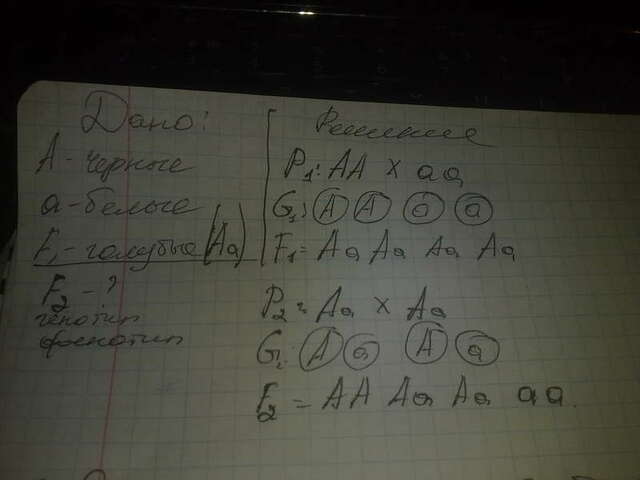 Дано:
А - черные
а - белые
F₁ - голубые (Аа)
F₂ - ?
генотип
фенотип
Решение
P₁: АА × аа
G₁: А А а а
F₁ = Аа Аа Аа Аа
P₂ = Аа × Аа
G₂: А а А а
F₂ = АА Аа Аа аа.